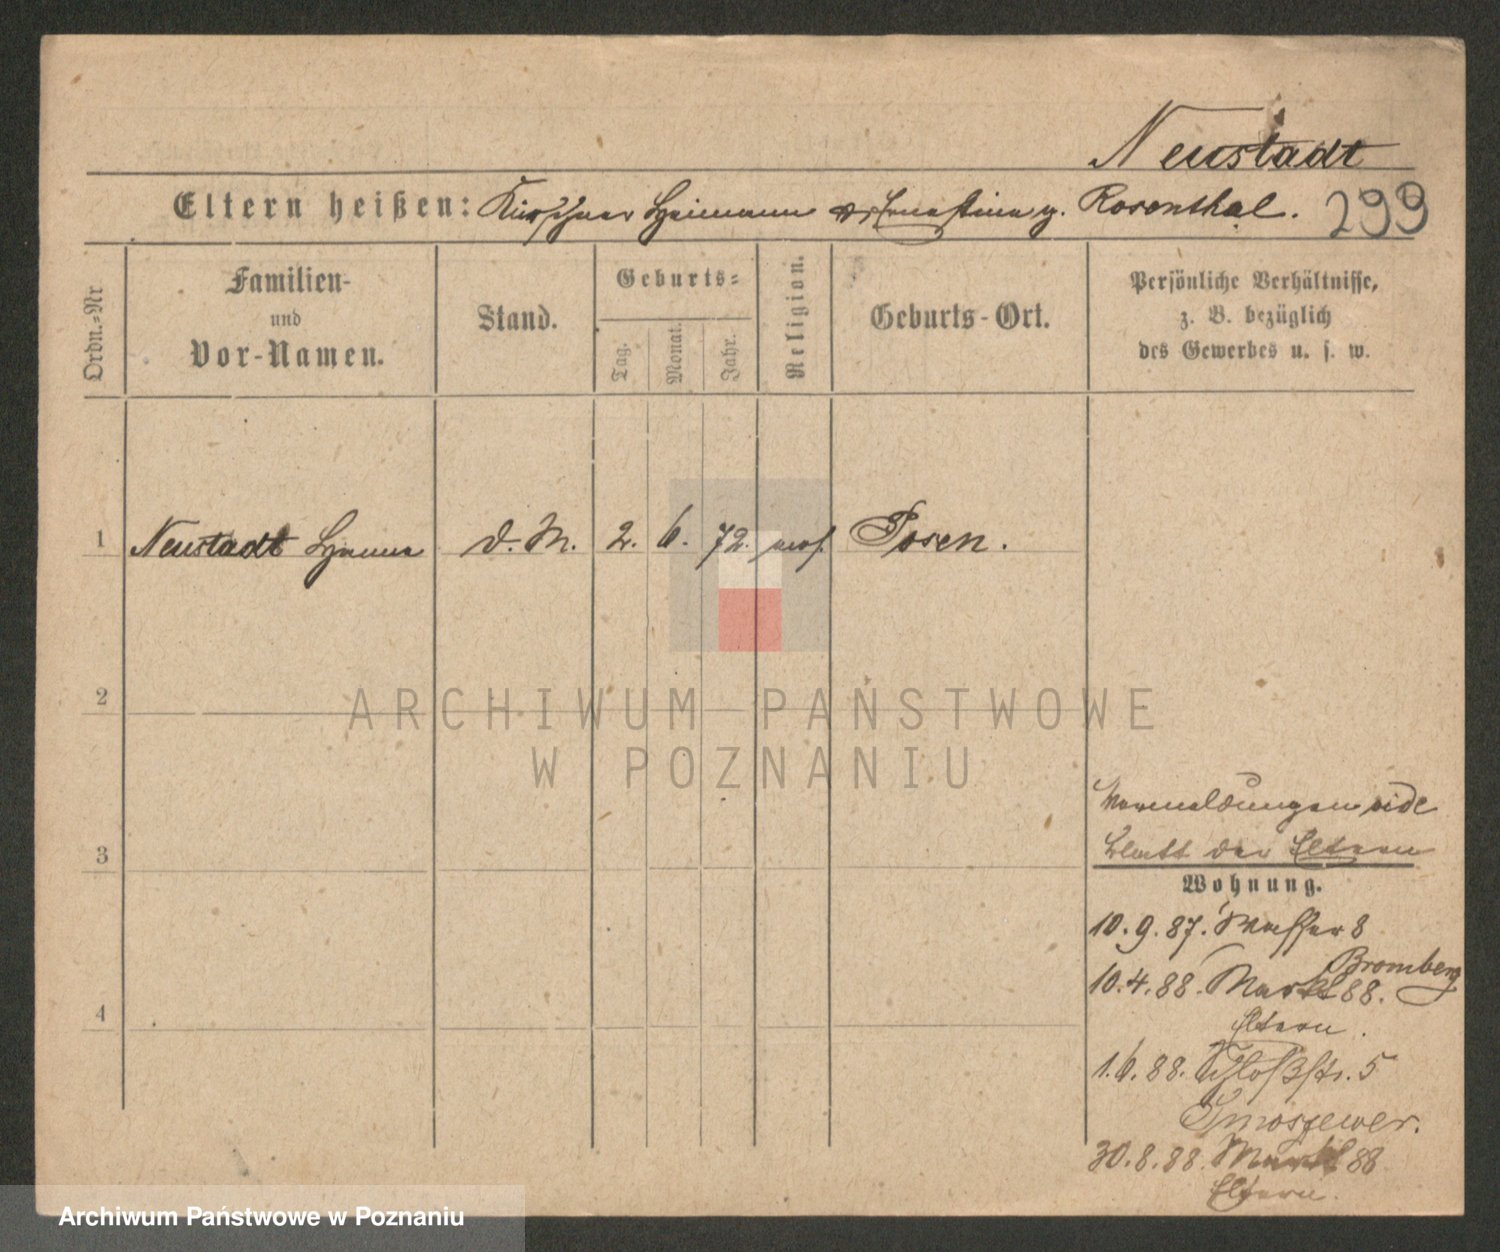 Neustadt
Eltern heißen: Kürschner Heimann u. Ernestine g. Rosenthal. 299
Ordn.-Nr
Familien-
und
Vor-Namen.
Stand.
Geburts-
Tag.
Monat.
Jahr.
Religion.
Geburts-Ort.
Persönliche Verhältnisse,
z. B. bezüglich
des Gewerbes u. s. w.
1 Neustadt d. M. 2. 6. 72. mos. Posen.
2
ARCHIWUM PAŃSTWOWE
W POZNANIU
3
4
vide
Blatt der Eltern
Wohnung.
10.9.87. Wasser 8
Bromberg
10.4.88. Markt 88.
Eltern.
1.6.88. Schloßstr. 5
30.8.88. Markt 88
Eltern.
Archiwum Państwowe w Poznaniu